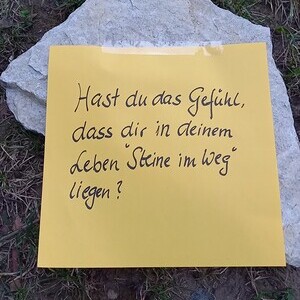 Hast du das Gefühl,
dass dir in deinem
Leben "Steine im Weg"
liegen?